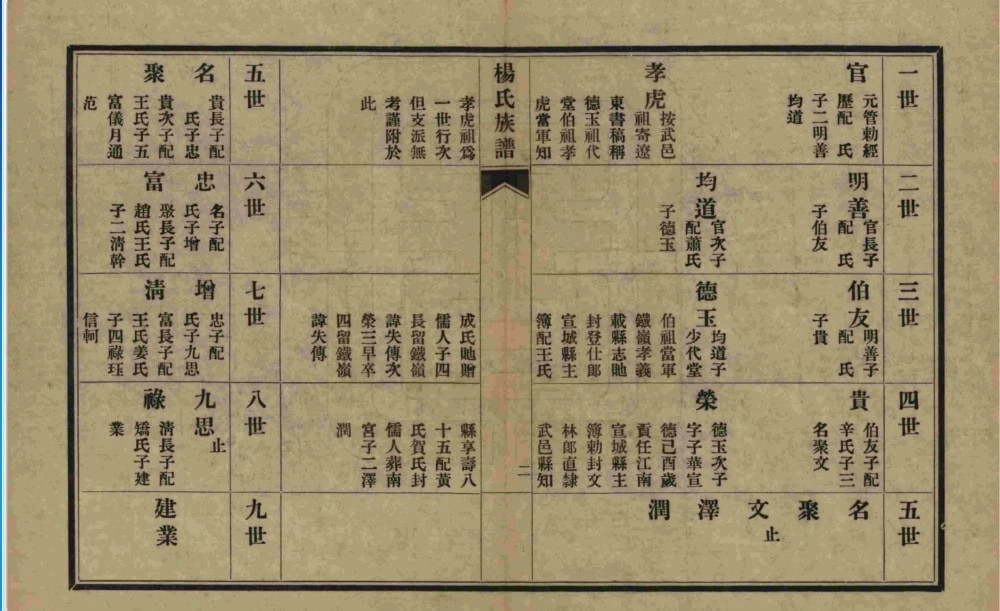 一世
官
元管勅經
歷配　氏
子二明善
均道
孝虎
按武邑
祖寄遼
東書稿稱
德玉祖代
堂伯祖孝
虎當軍知
孝虎祖為
一世行次
但支派無
考謹附於
此
二世
明善
官長子
配　氏
子伯友
均道
官次子
配蕭氏
子德玉
三世
伯友
明善子
配　氏
子貴
德玉
均道子
少代堂
伯祖當軍
鐵嶺孝義
載縣志貤
封登仕郎
宣城縣主
簿配王氏
成氏貤贈
儒人子四
長留鐵嶺
諱失傳次
榮三早卒
四留鐵嶺
諱失傳
四世
貴
伯友子配
辛氏子三
名聚文
榮
德玉次子
字子華宣
德己酉歲
貢任江南
宣城縣主
簿勅封文
林郎直隸
武邑縣知
縣享壽八
十五配黃
氏賀氏封
儒人葬南
宮子二澤
潤
五世
名
聚
文
止
澤
潤
楊氏族譜
二
五世
名
貴長子配
氏子忠
聚
貴次子配
王氏子五
富儀月通
范
六世
忠
名子配
氏子增
富
聚長子配
趙氏王氏
子二淸幹
七世
增
忠子配
氏子九思
淸
富長子配
王氏姜氏
子四祿珏
信軻
八世
九思
止
祿
淸長子配
矯氏子建
業
九世
建業